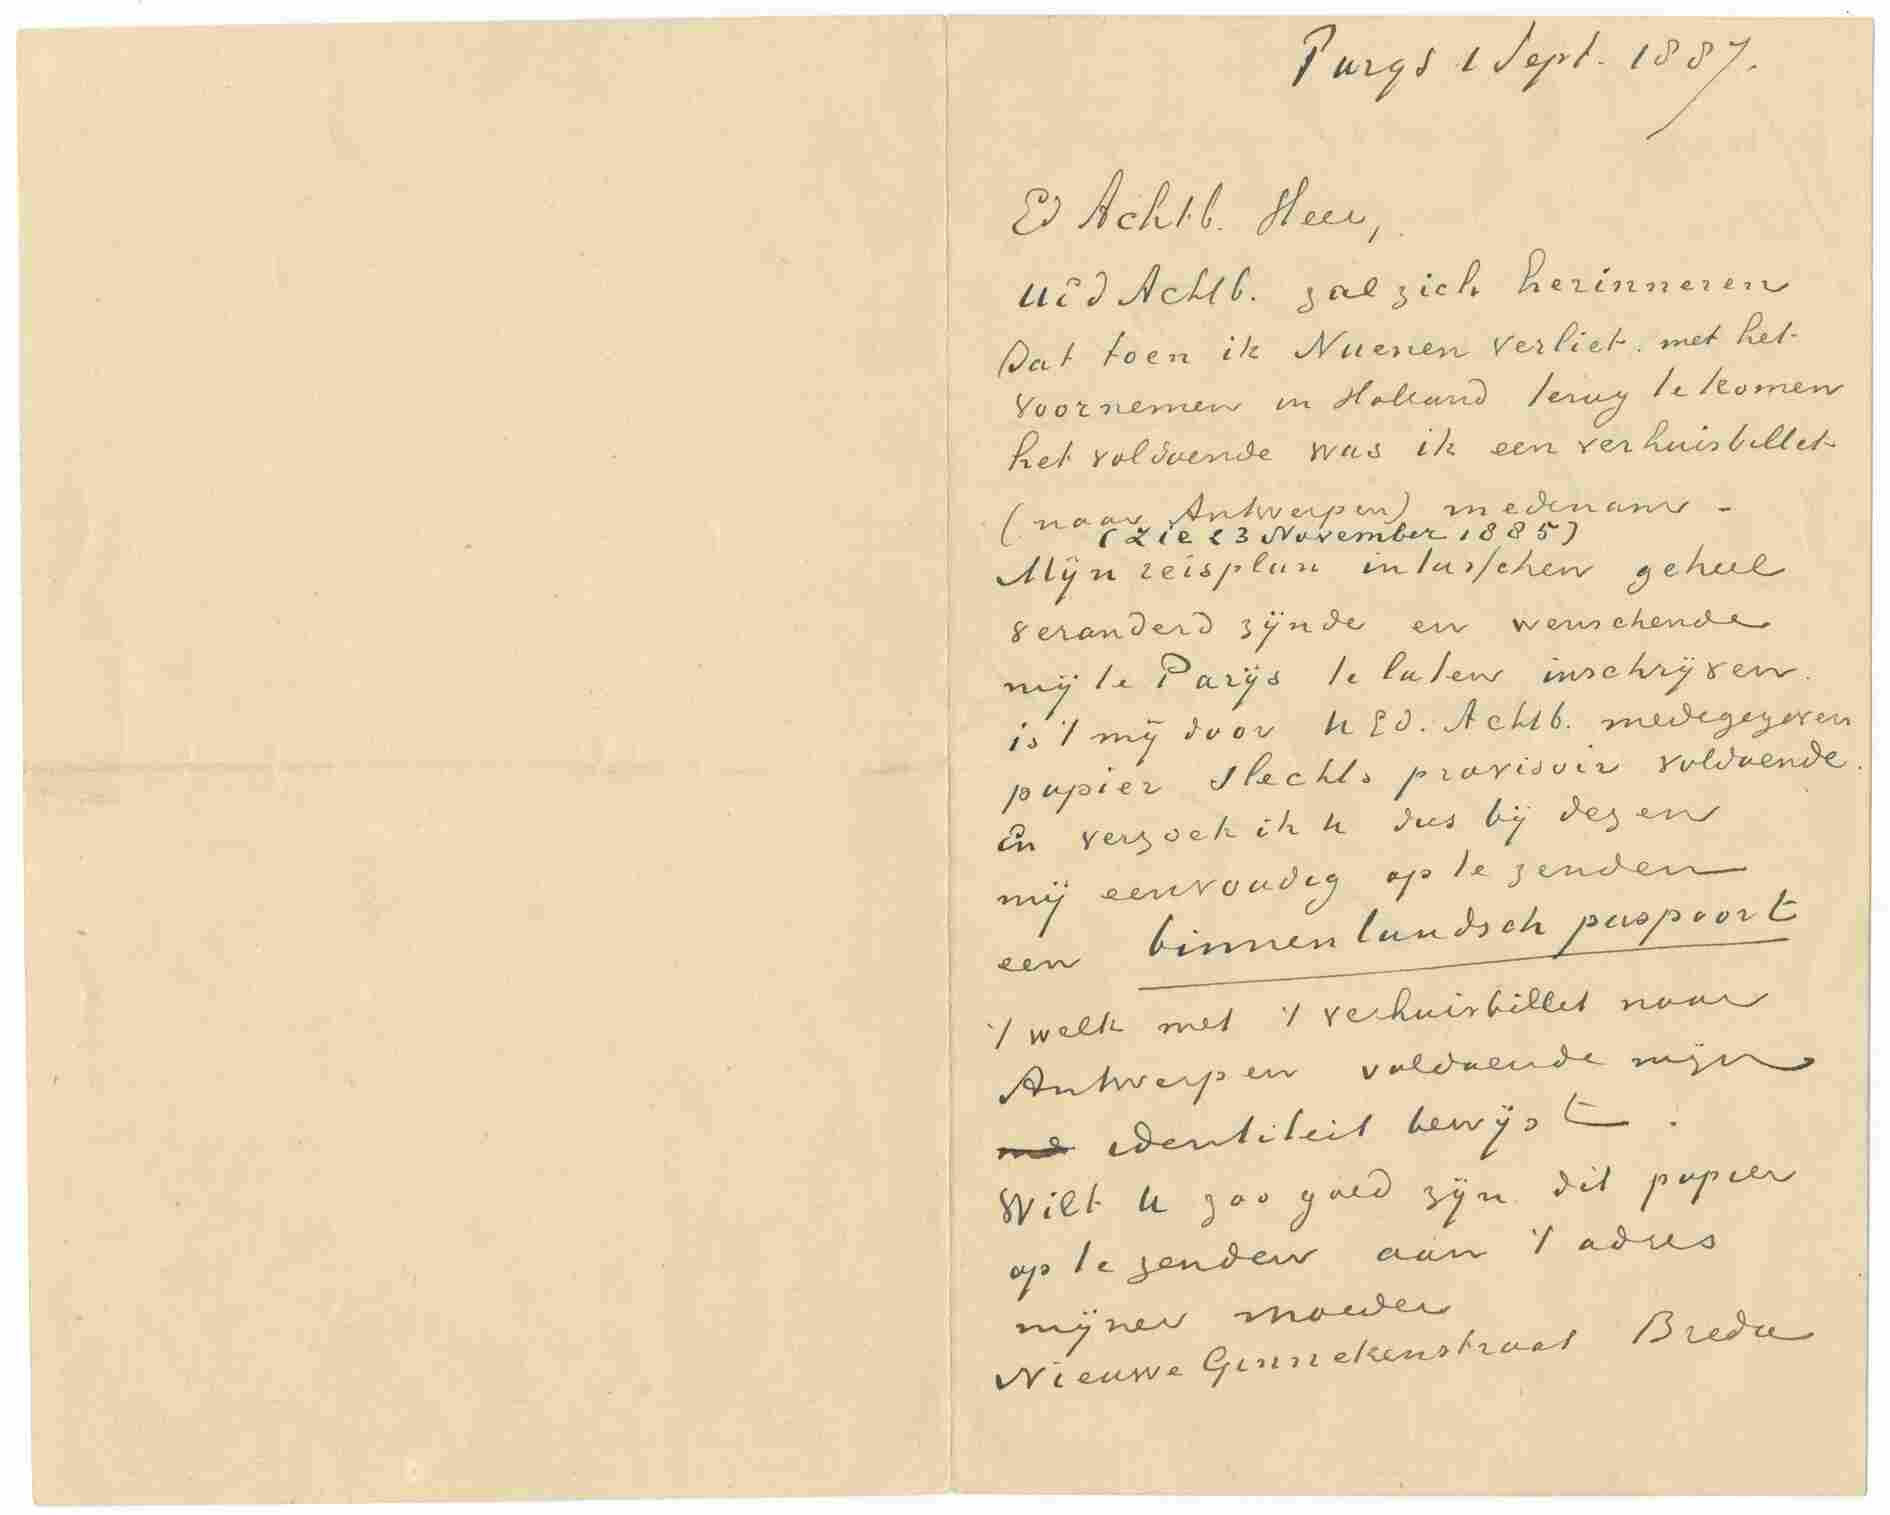 Parys 1 Sept. 1887.
Ed Achtb. Heer,
UEd Achtb. zal zich herinneren
dat toen ik Nuenen verliet. met het
voornemen in Holland terug te komen
het voldoende was ik een verhuisbillet
(naar Antwerpen) medenam -
(zie 23 November 1885)
Mijn reisplan intusschen geheel
veranderd zijnde en wenschende
mij te Parijs te laten inschrijven.
is 't mij door UEd. Achtb. medegegeven
papier slechts provisoir voldoende.
En verzoek ik U dus bij dezen
mij eenvoudig op te zenden
een binnenlandsch paspoort
't welk met 't verhuisbillet naar
Antwerpen voldoende mijn
identiteit bewijst.
Wilt U zoo goed zijn dit papier
op te zenden aan 't adres
mijner moeder
Nieuwe Ginnekenstraat Breda